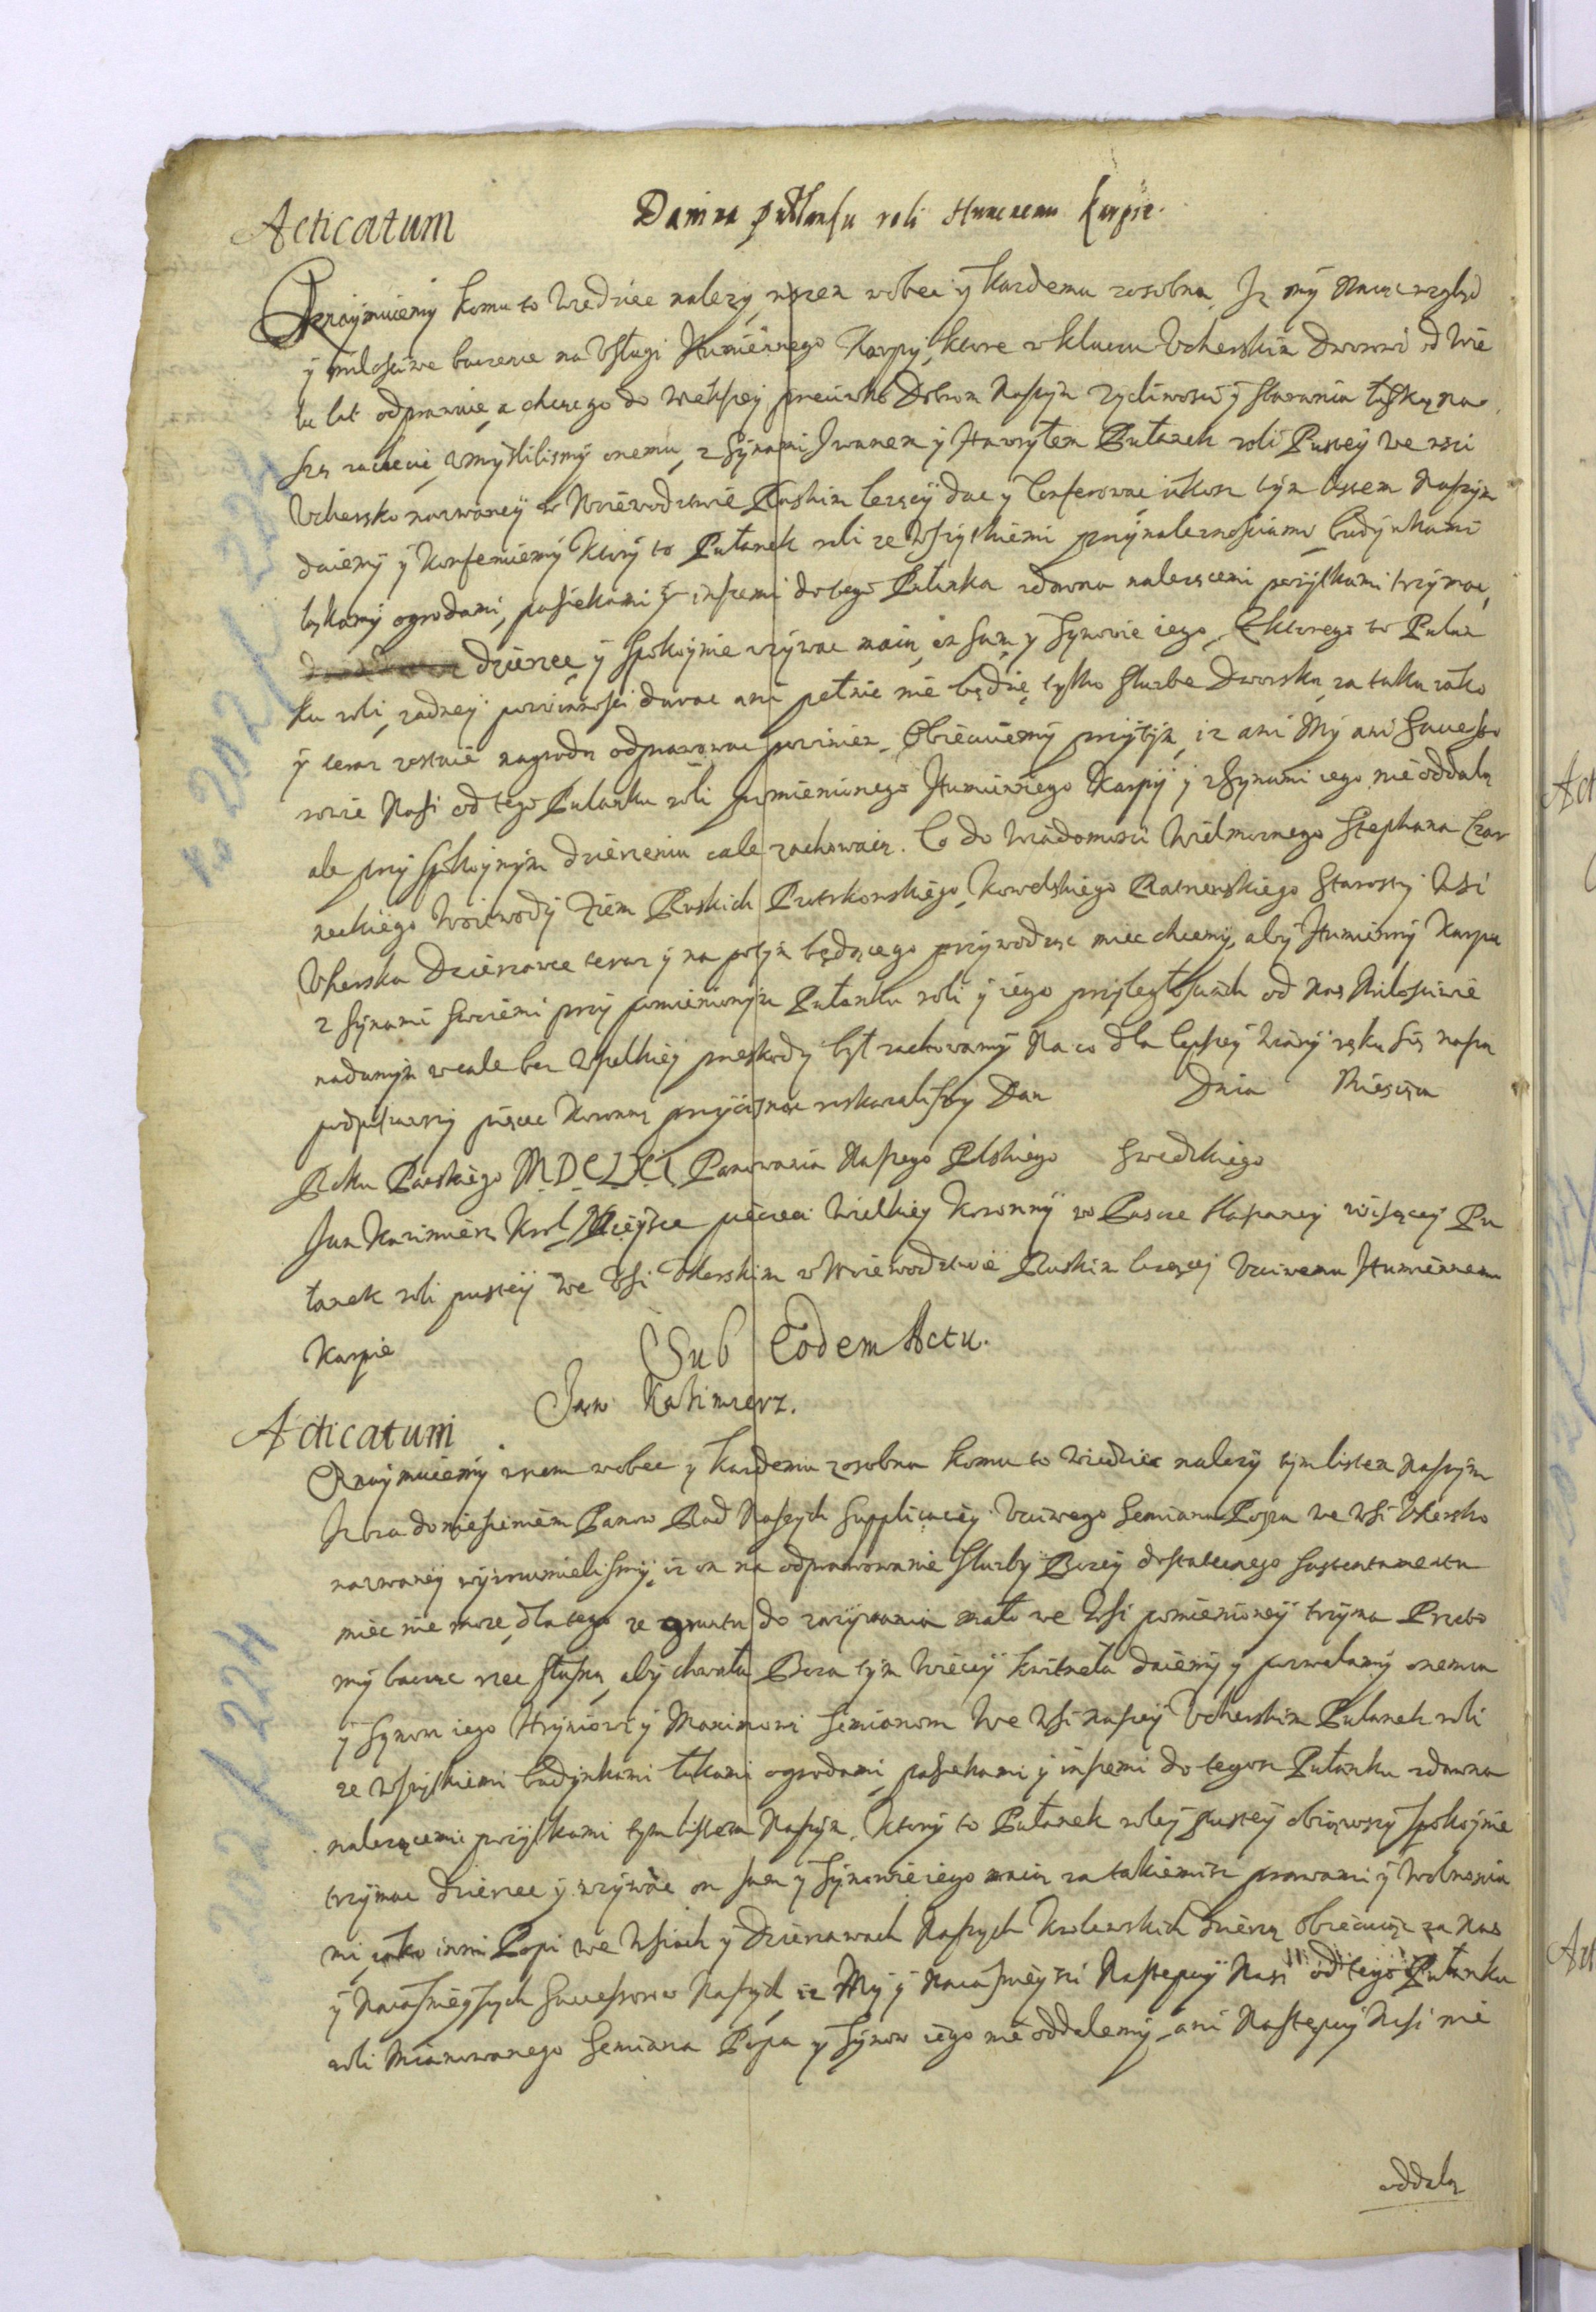 Acticatum
Danina Pułłanku roli Humennu Karpie.
Oznaymuiemy komu to wiedziec nalezy, wszem wobec y kazdemu zosobna, Iz my maiąc wzgląd
y miłosciwe baczenie na Usługi Humiennego Karpy, ktore w kluczu Vcherskim Dworowi od wie
lu lat odprawuie, a chcąc go do wiekszey przeciwko Dobrom Naszym zycliwosci y starania łaską na
szą zachecic, vmyslilismy onemu, z synami Iwanem y Hawryłem Pułanek roli Pustey we wsi
Vchersko nazwaney w Woiewodztwie Ruskim lezącey dac y conferowac iakosz tym listem Naszym
daiemy y konferuiemy Ktory to Pułanek roli ze wszystkiemi przynaleznosciami, budynkami
łąkamy ogrodami, pasiekami y inszemi do tego Pułanka zdawna nalezącemi pozytkami trzymac,
dzierzec y spokoynie uzywac maią, on sam y synowie iego, Z ktorego to Pułan
ku roli, zadney powinnosci dawac ani pełnic nie będzie, tylko sluzbe Dworską, za taką iako
y teraz zostaie nagrodą odprawowac powinien. Obiecuiemy przytym, iz ani My ani Successo
rowie Nasi od tego Pułanku roli pomienionego Humiennego Karpy y z synami iego nie oddalą
ale przy spokoynym dzierzeniu cale zachowaią. Co do wiadomosci Wielmoznego Stephana Czar
neckiego Woiewody Ziem Ruskich Piotrkowskiego, Kowelskiego Ratnenskiego Starosty Wsi
Vherska Dzierzawce teraz y na potym będącego przywodząc miec chcemy, aby Humienny Karpa
z synami swoiemi przy pomienionym Pułanku roli y iego przyległosciach od nas Miłosciwie
nadanym wcale bez wszelkiey przeskody był zachowany Na co dla lepszey wiary ręką się naszą
podpisawszy pieczec Koronną przycisnąc roskazalismy Dan Dnia Miesiąca
Roku Panskiego MDCLXI Panowania Naszego Polskiego Swedzkiego
Jan Kazimierz Krol Mieysce pieczeci Wielkiey Koronny w Pusce Ksaney wisącey Pu
łanek roli pustey we Wsi Vherskim w Woiewodztwie Ruskim lezącey Vczciwemu Humiennemu
Karpie
Sub Eodem Actu.
Jan Kazimierz.
Acticatum
Oznaymuiemy wszem wobec y kazdemu zosobna komu to wiedziec nalezy tym listem naszym
Iz za doniesieniem Panow Rad Naszych Supplicacyi Vczciwego Semiana Popa we Wsi Vhersko
nazwaney wyrozumielismy, iz on na odprawowanie Sluzby Bozey dostatecznego sustentamentu
miec nie moze, dlatego ze gruntu do zazywania mało we Wsi pomienioney trzyma Przeto
my bacząc rzec słuszną, aby chwała Boza tym wiecey kwitneła daiemy y pozwalamy onemu
y Synow iego Hryniowi y Maximowi Semianom We Wsi naszey Vcherskim Pułanek roli
ze wszystkiemi budynkami łąkami ogrodami, pasiekami y inszemi do tegosz Pułanku zdawna
nalezącemi pozytkami tym listem Naszym. Ktory to Pułanek roley pustey obiąwszy spokoynie
trzymac dzierzec y uzywac on sam y Synowie iego maią za takiemisz prawami y wolnoscia
mi iako inni Popi we Wsiach y dzierzawach Naszych Krolewskich bierzą obiecuiąc za nas
y Naiasnieyszych Successorow Naszych, iz My y Naiasnieyszi Nastepcy Nasi od tego Pułanku
roli Mianowanego Semiana Popa y Synow iego nie oddalemy, ani Nastepcy Nasi nie
oddalą
Ks 202 / L 224
202 / L 224